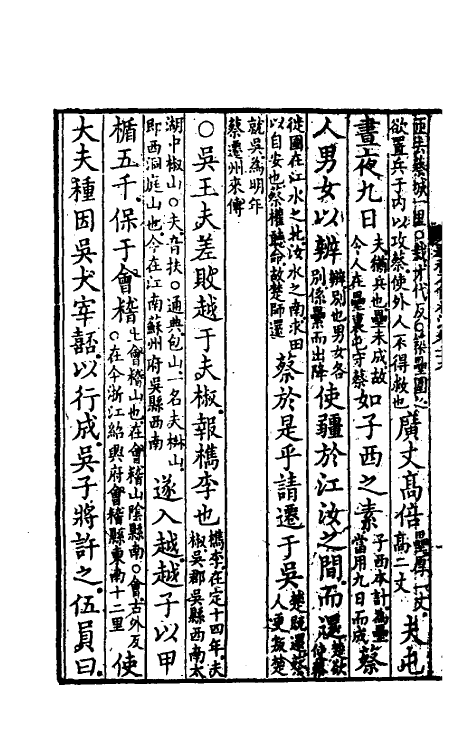 匝去蔡城一里○栽才代反○築壘圍之欲置兵于内以攻蔡使外人不得救也廣丈高倍壘厚一丈高二丈夫屯
晝夜九日夫猶兵也壘未成故令人在壘裏屯守蔡如子西之素子西本計為壘當用九日而成蔡
人男女以辨辨別也男女各別係纍而出降使疆於江汝之間而還楚欲使蔡
徙國在江水之北汝水之南求田以自安也蔡權聽命故楚師還蔡於是乎請遷于吳楚既還蔡人更叛楚
就吳為明年蔡遷州來傳
○吳王夫差敗越于夫椒報檇李也檇李在定十四年夫椒吳郡吳縣西南太
湖中椒山○夫音扶○通典包山一名夫椒山即西洞庭山也今在江南蘇州府吳縣西南遂入越越子以甲
楯五千保于會稽上會稽山也在會稽山陰縣南○會古外反○在今浙江紹興府會稽縣東南十二里使
大夫種因吳大宰嚭以行成吳子將許之伍員曰